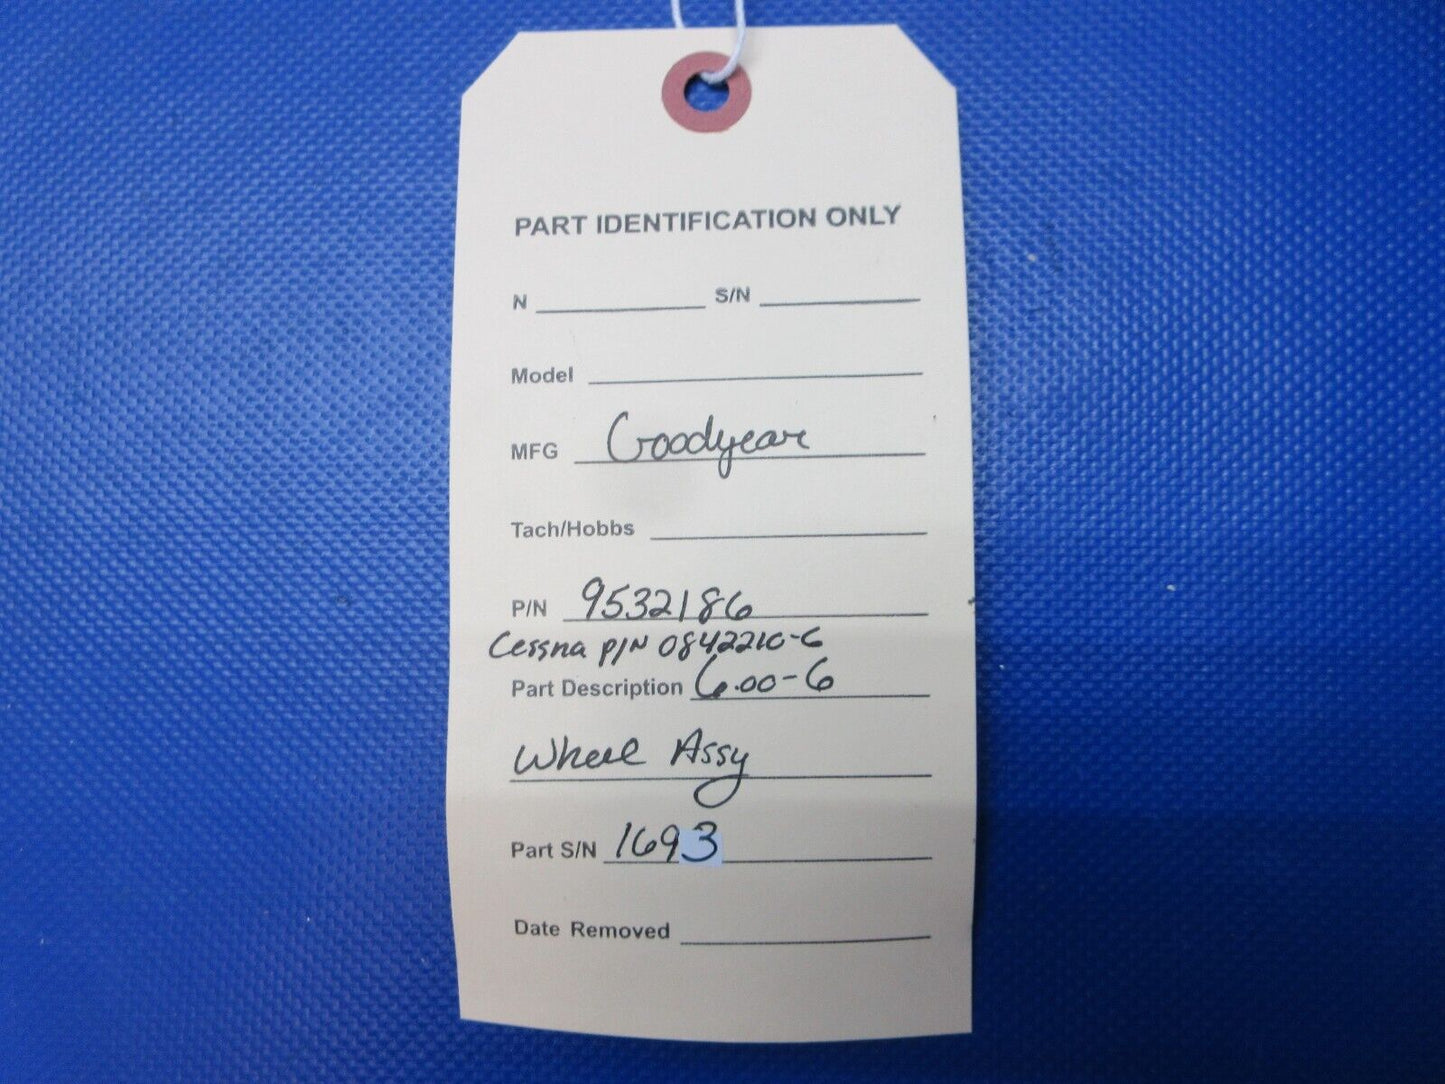 PART IDENTIFICATION ONLY
N S/N
Model
MFG Goodyear
Tach/Hobbs
P/N 9532186
Cessna P/N 0842210-6
Part Description 6.00-6
Wheel Assy
Part S/N 1693
Date Removed